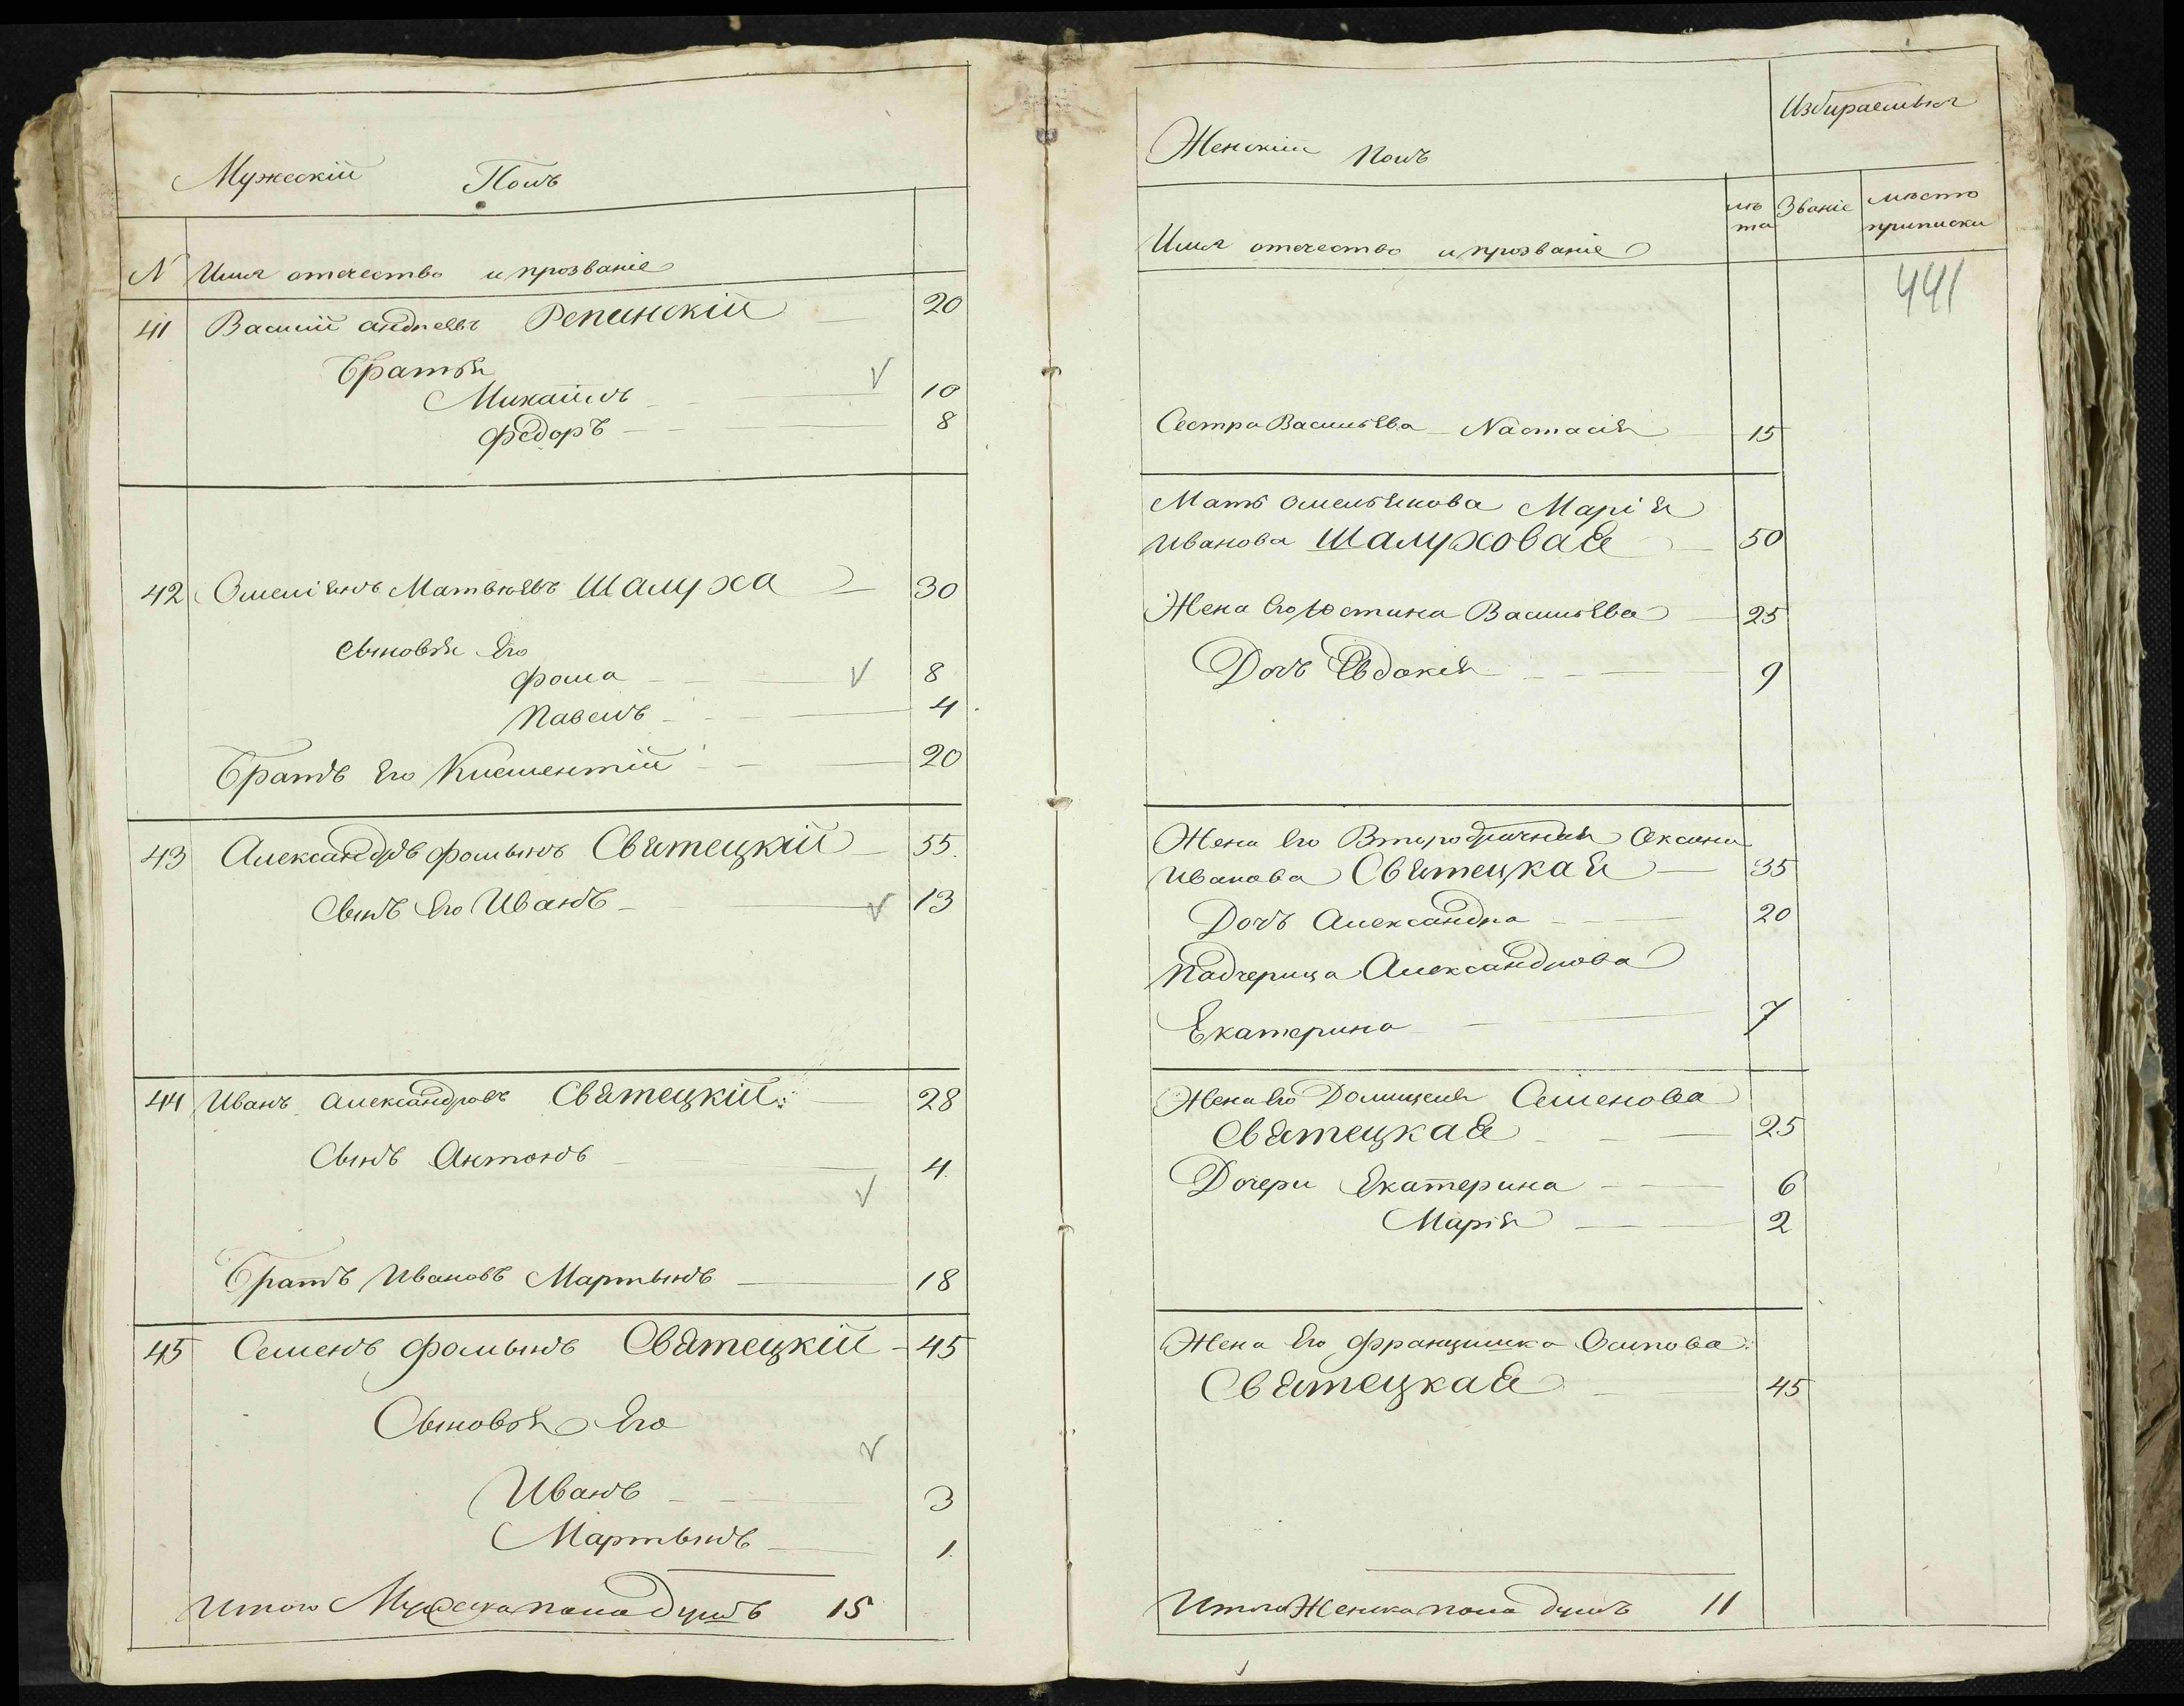 Мужескій Полъ
N Имя отечество и прозваніе
41 Василій андреевъ Репинскій 20
Братья
Михайлъ 10
Федоръ 8
42 Омеліянъ Матвѣевъ Шалуха 30
сыновья Его
Фома 8
Павелъ 4
Братъ Его Клементій 20
43 Александръ Фомынъ Святецкій 55
Сынъ Его Иванъ 13
44 Иванъ александровъ Святецкій 28
Сынъ Антонъ 4
Братъ Ивановъ Мартынъ 18
45 Семенъ Фомынъ Святецкій 45
Сыновья Его
Иванъ 3
Мартынъ 1
Итого Мужеска пола Душъ 15
Женскій Полъ
Избираемыя
Имя отечество и прозваніе
лѣ та
Званіе
мѣсто приписки
441
Сестра Васильева Настасія 15
Мать омельянова Марія
Иванова Шалуховая 50
Жена Его Юстина Васильева 25
Дочь Евдокія 9
Жена Его Второбрачная Оксана
Иванова Святецкая 35
Дочь Александра 20
Падчерица Александрова
Екатерина 7
Жена Его Домицеля Семенова
Святецкая 25
Дочери Екатерина 6
Марія 2
Жена Его Францишка Осипова
Святецкая 45
Итого Женска пола душъ 11